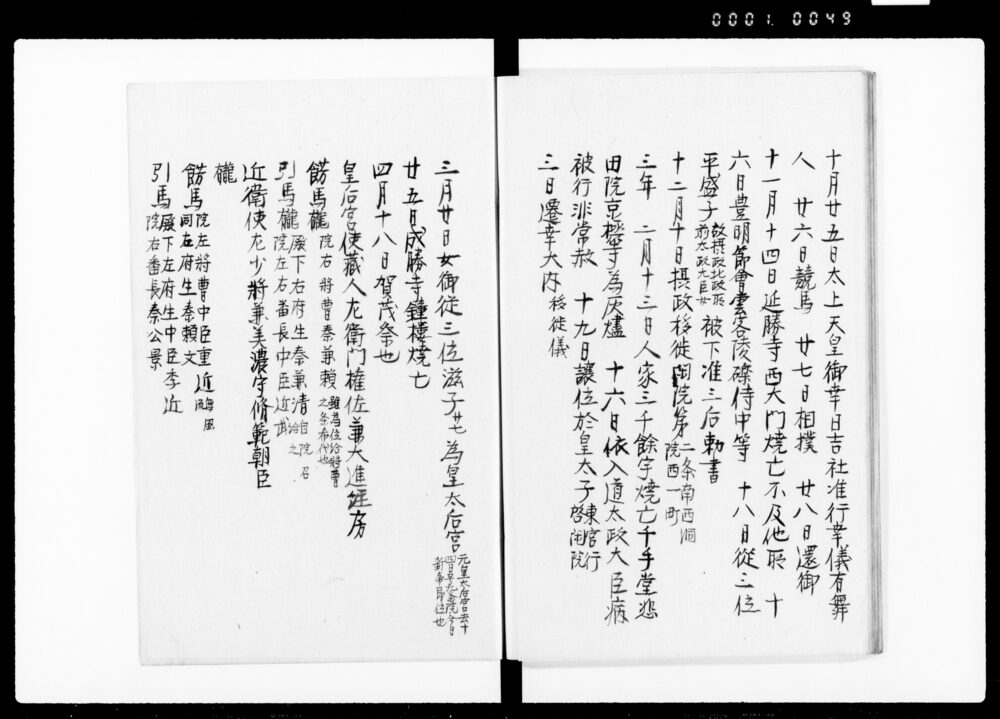 0001 0049
十月廿五日太上天皇御幸日吉社准行幸儀有舞
人 廿六日競馬 廿七日相撲 廿八日還御
十一月十四日延勝寺西大門燒亡不及他所 十
六日豊明節會雲客陵礫侍中等 十八日從三位
平盛子故摂政北政所前太政大臣女被下准三后勅書
十二月十日摂政移徙閑院第二条南西洞院西一町
三年 二月十三日人家三千餘宇燒亡千手堂悲
田院京極寺為灰燼 十六日依入道太政大臣病
被行非常赦 十九日讓位於皇太子東宮行啓閑院
三日遷幸大内移徙儀
三月廿日女御従三位滋子廿七為皇太后宮元皇太后宮去十新帝即位也
廿五日成勝寺鐘樓燒亡
四月十八日賀茂祭也
皇后宮使藏人左衛門権佐兼大進經房
餝馬櫳院右將曹秦兼頼雖為位給將曹之条希代也
引馬櫳殿下右府生秦兼清自院召給之院左右番長中臣近武
近衛使左少將兼美濃守脩範朝臣
櫳
餝馬院左將曹中臣重近同右府生秦頼文
引馬殿下左府生中臣季近院右番長秦公景